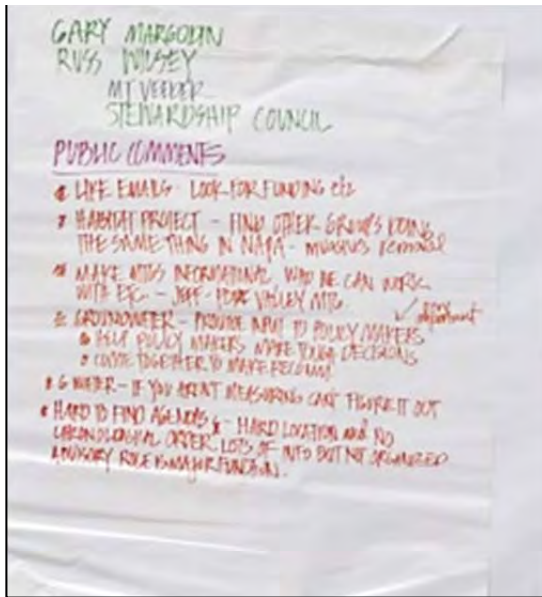 GARY MARGOLIN
RUSS WILSEY
MT VEEDER
STEWARDSHIP COUNCIL
PUBLIC COMMENTS
LIKE EMAILS - LOOK FOR FUNDING etc
HABITAT PROJECT - FIND OTHER GROUPS DOING
THE SAME THING IN NAPA - removal
MAKE MTGS INFORMATIONAL WHO WE CAN WORK
WITH ETC. - JEFF - POPE VALLEY MTG
very important
GROUNDWATER - PROVIDE INPUT TO POLICY MAKERS
HELP POLICY MAKERS MAKE TOUGH DECISIONS
COME TOGETHER TO MAKE
G WATER - IF YOU AREN'T MEASURING CAN'T FIGURE IT OUT
HARD TO FIND AGENDAS - HARD LOCATION and NO
CHRONOLOGICAL ORDER. LOTS OF INFO BUT NOT ORGANIZED
ADVISORY ROLE IS MAJOR FUNCTION.